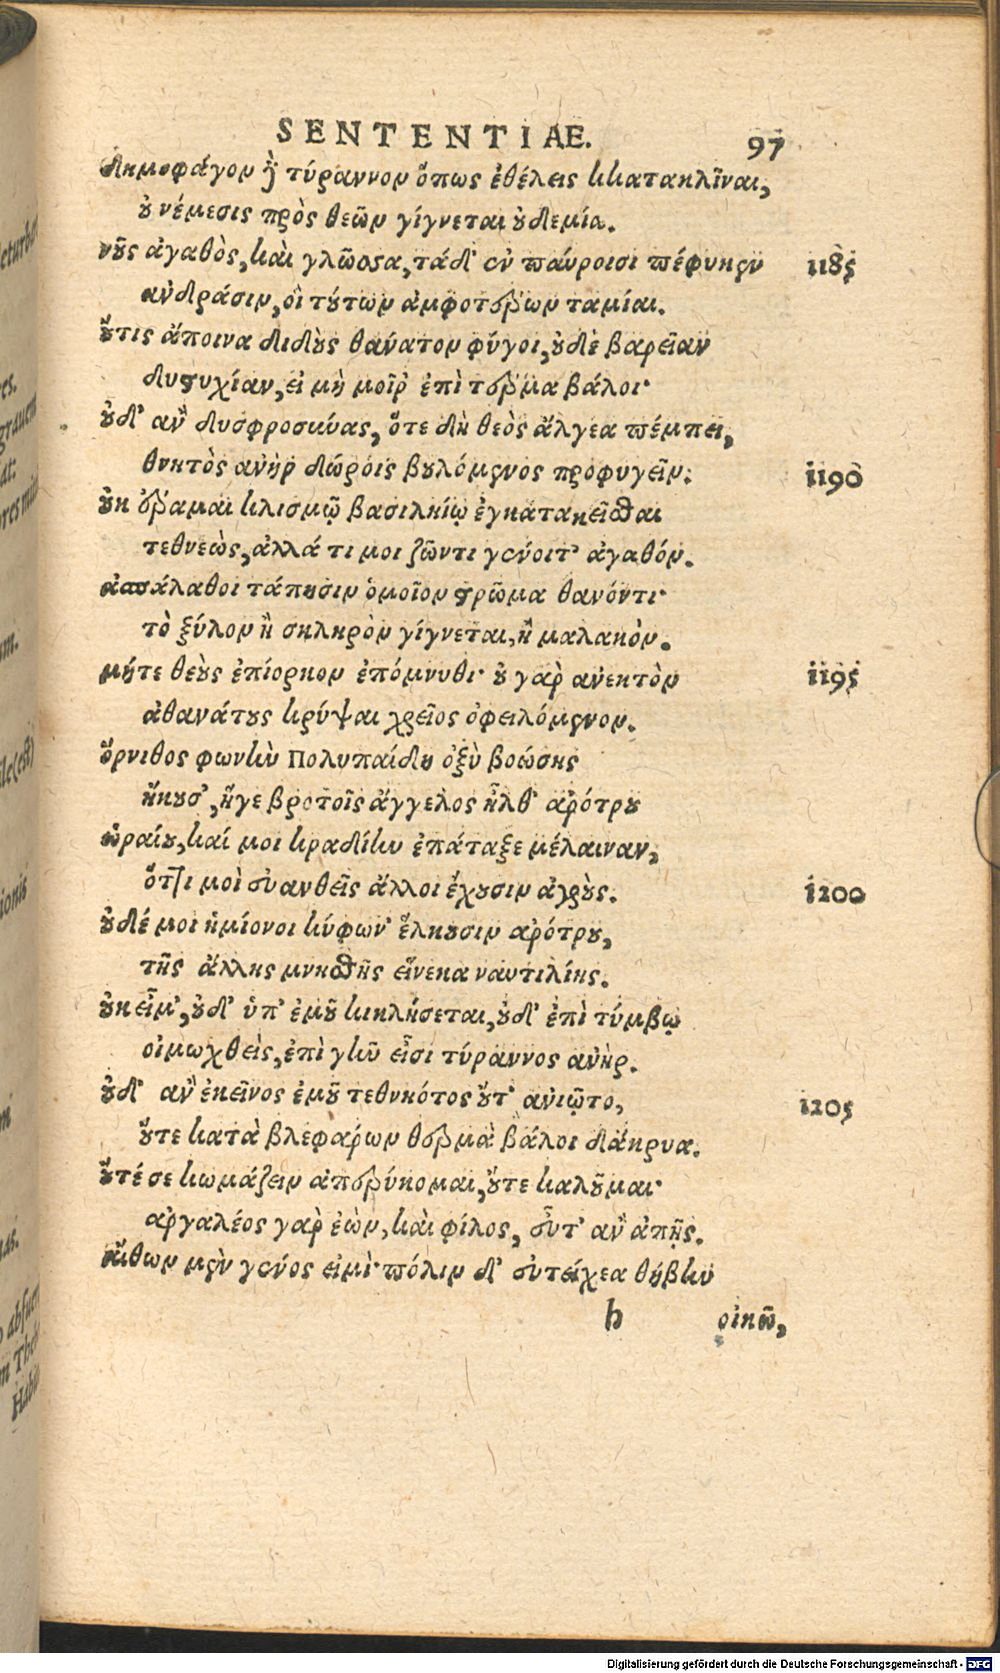 SENTENTIAE. 97
δημοφάγον δὲ τύραννον ὅπως ἐθέλεις κατακλῖναι,
οὐ νέμεσις πρὸς θεῶν γίγνεται οὐδεμία.
νοῦς ἀγαθὸς, καὶ γλῶσσα, τάδ' ἐν παύροισι πέφυκεν 1185
ἀνδράσιν, οἳ τούτων ἀμφοτέρων ταμίαι.
οὔτις ἄποινα διδοὺς θάνατον φύγοι, οὐδὲ βαρεῖαν
δυστυχίαν, εἰ μὴ μοῖρ' ἐπὶ τέρμα βάλοι·
οὐδ' ἂν δυσφροσύνας, ὅτε δὴ θεὸς ἄλγεα πέμπει,
θνητὸς ἀνὴρ δώροις βουλόμενος προφυγεῖν. 1190
οὐκ ἔραμαι κλισμῷ βασιληίῳ ἐγκατακεῖσθαι
τεθνεὼς, ἀλλά τι μοι ζῶντι γένοιτ' ἀγαθόν.
ἀσπάλαθοι τάπησιν ὁμοῖον στρῶμα θανόντι·
τὸ ξύλον ἢ σκληρὸν γίγνεται, ἢ μαλακὸν.
μήτε θεοὺς ἐπίορκον ἐπόμνυθι· οὐ γὰρ ἀνεκτὸν 1195
ἀθανάτους κρύψαι χρεῖος ὀφειλόμενον.
ὄρνιθος φωνὴν Πολυπαίδη ὀξὺ βοώσης
ἤκουσ', ἥγε βροτοῖς ἄγγελος ἦλθ' ἀρότρου
ὡραίου, καί μοι κραδίην ἐπάταξε μέλαιναν,
ὅττι μοὶ εὐανθεῖς ἄλλοι ἔχουσιν ἀγρούς. 1200
οὐδέ μοι ἡμίονοι κύφων' ἕλκουσιν ἀρότρου,
τῆς ἄλλης μνηστῆς εἵνεκα ναυτιλίης.
οὐκ εἶμ', οὐδ' ὑπ' ἐμοῦ κικλήσεται, οὐδ' ἐπὶ τύμβῳ
οἰμωχθεὶς, ἐπὶ γῆν εἶσι τύραννος ἀνὴρ.
οὐδ' ἂν ἐκεῖνος ἐμοῦ τεθνηκότος οὔτ' ἀνιῷτο, 1205
οὔτε κατὰ βλεφάρων θερμὰ βάλοι δάκρυα.
οὔτέ σε κωμάζειν ἀπερύκομαι, οὔτε καλοῦμαι·
ἀργαλέος γὰρ ἐὼν, καὶ φίλος, εὖτ' ἂν ἀπῇς.
αἴθων μὲν γένος εἰμὶ· πόλιν δ' εὐτείχεα θήβην
h οἰκῶ,
Digitalisierung gefördert durch die Deutsche Forschungsgemeinschaft - DFG